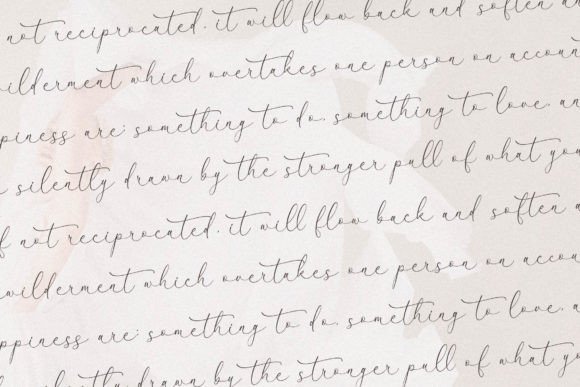 not reciprocated, it will flow back and soften an
wilderment which overtakes one person on accoun
ppiness are: something to do, something to love, an
silently drawn by the stronger pull of what you
f not reciprocated, it will flow back and soften a
wilderment which overtakes one person on accou
ppiness are: something to do, something to love, a
silently drawn by the stronger pull of what yo